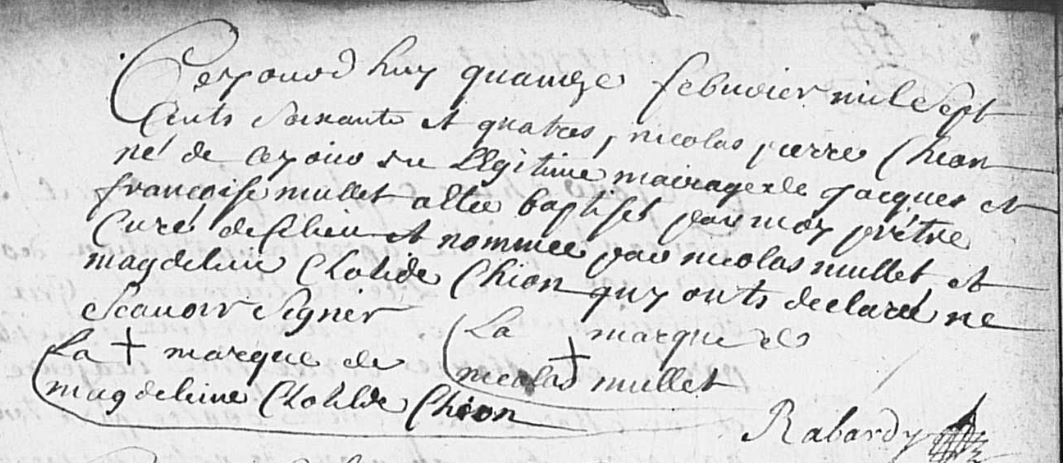 Ceyourd huy quainzse febuvier mil sept
Cents soixante et quatres, nicolas pierre Chion
né de ce jour du Llgitime mairage de Jacques et
francoise mullet a ette baptisés par moy prétre
Curé de ce lieu et nommée par nicolas mullet, et
magdeleine Clotilde Chion quy onts declareé ne
scavoir signer
La + marque de
magdeleine Clotilde Chion
La + marque de
nicolas mullet
Rabardy